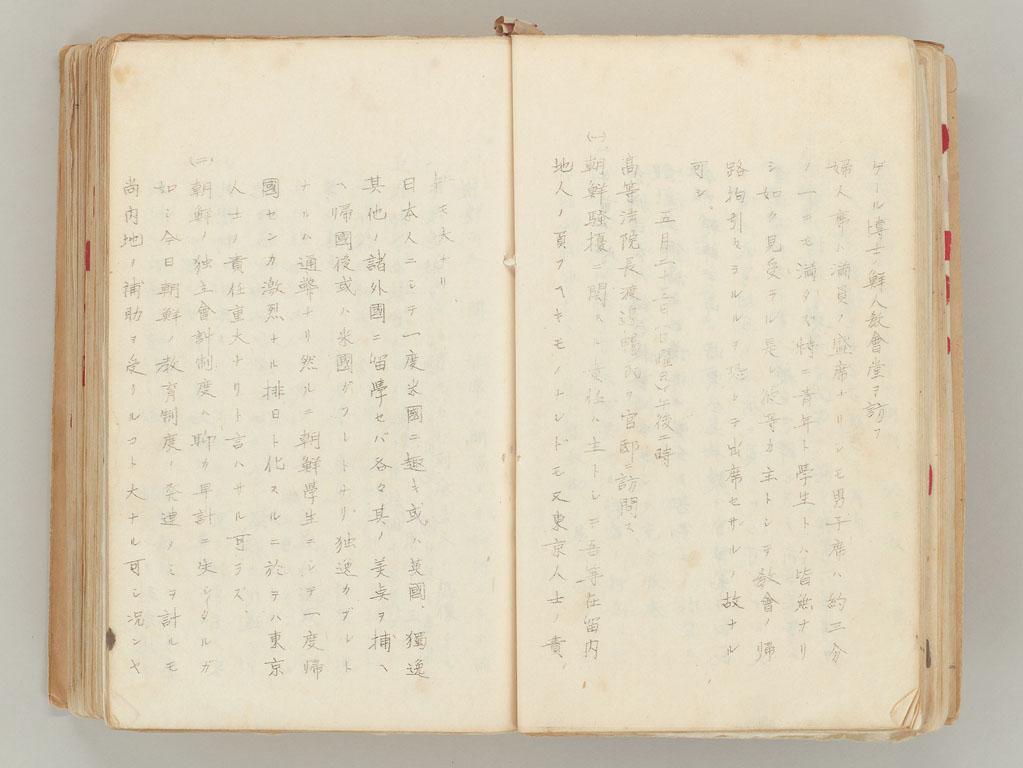 ゲール博士ノ鮮人教會堂ヲ訪フ
婦人席ハ満員ノ盛席ナリシモ男子席ハ約二分
ノ一ニモ満タズ特ニ青年ト學生トハ皆無ナリ
シ如ク見受ラル是レ彼等カ主トシテ教會ノ帰
路拘引セラルルヲ恐レテ出席セサルノ故ナル
可シ
五月二十三日 午後二時
高等法院長渡邊暢氏ヲ官邸ニ訪問ス
(一)
朝鮮騒擾ニ関スル責任ハ主トシテ吾等在留内
地人ノ負フヘキモノナレドモ又東京人士ノ責
モ大ナリ
日本人ニシテ一度米國ニ趣キ或ハ英國、獨逸
其他ノ諸外國ニ留學セバ各々其ノ美点ヲ捕ヘ
ヘ帰國後或ハ米國ガフレトナリ独逸カブレト
ナルハ通弊ナリ然ルニ朝鮮學生ニシテ一度帰
國センカ激烈ナル排日ト化スルニ於テハ東京
人士ノ責任重大ナリト言ハサル可ラズ
(二)
朝鮮ノ独立會計制度ハ聊カ早計ニ失シタルガ
如シ今日朝鮮ノ教育制度ノ発達ノミヲ計ルモ
尚内地ノ補助ヲ受クルコト大ナル可シ況ンヤ